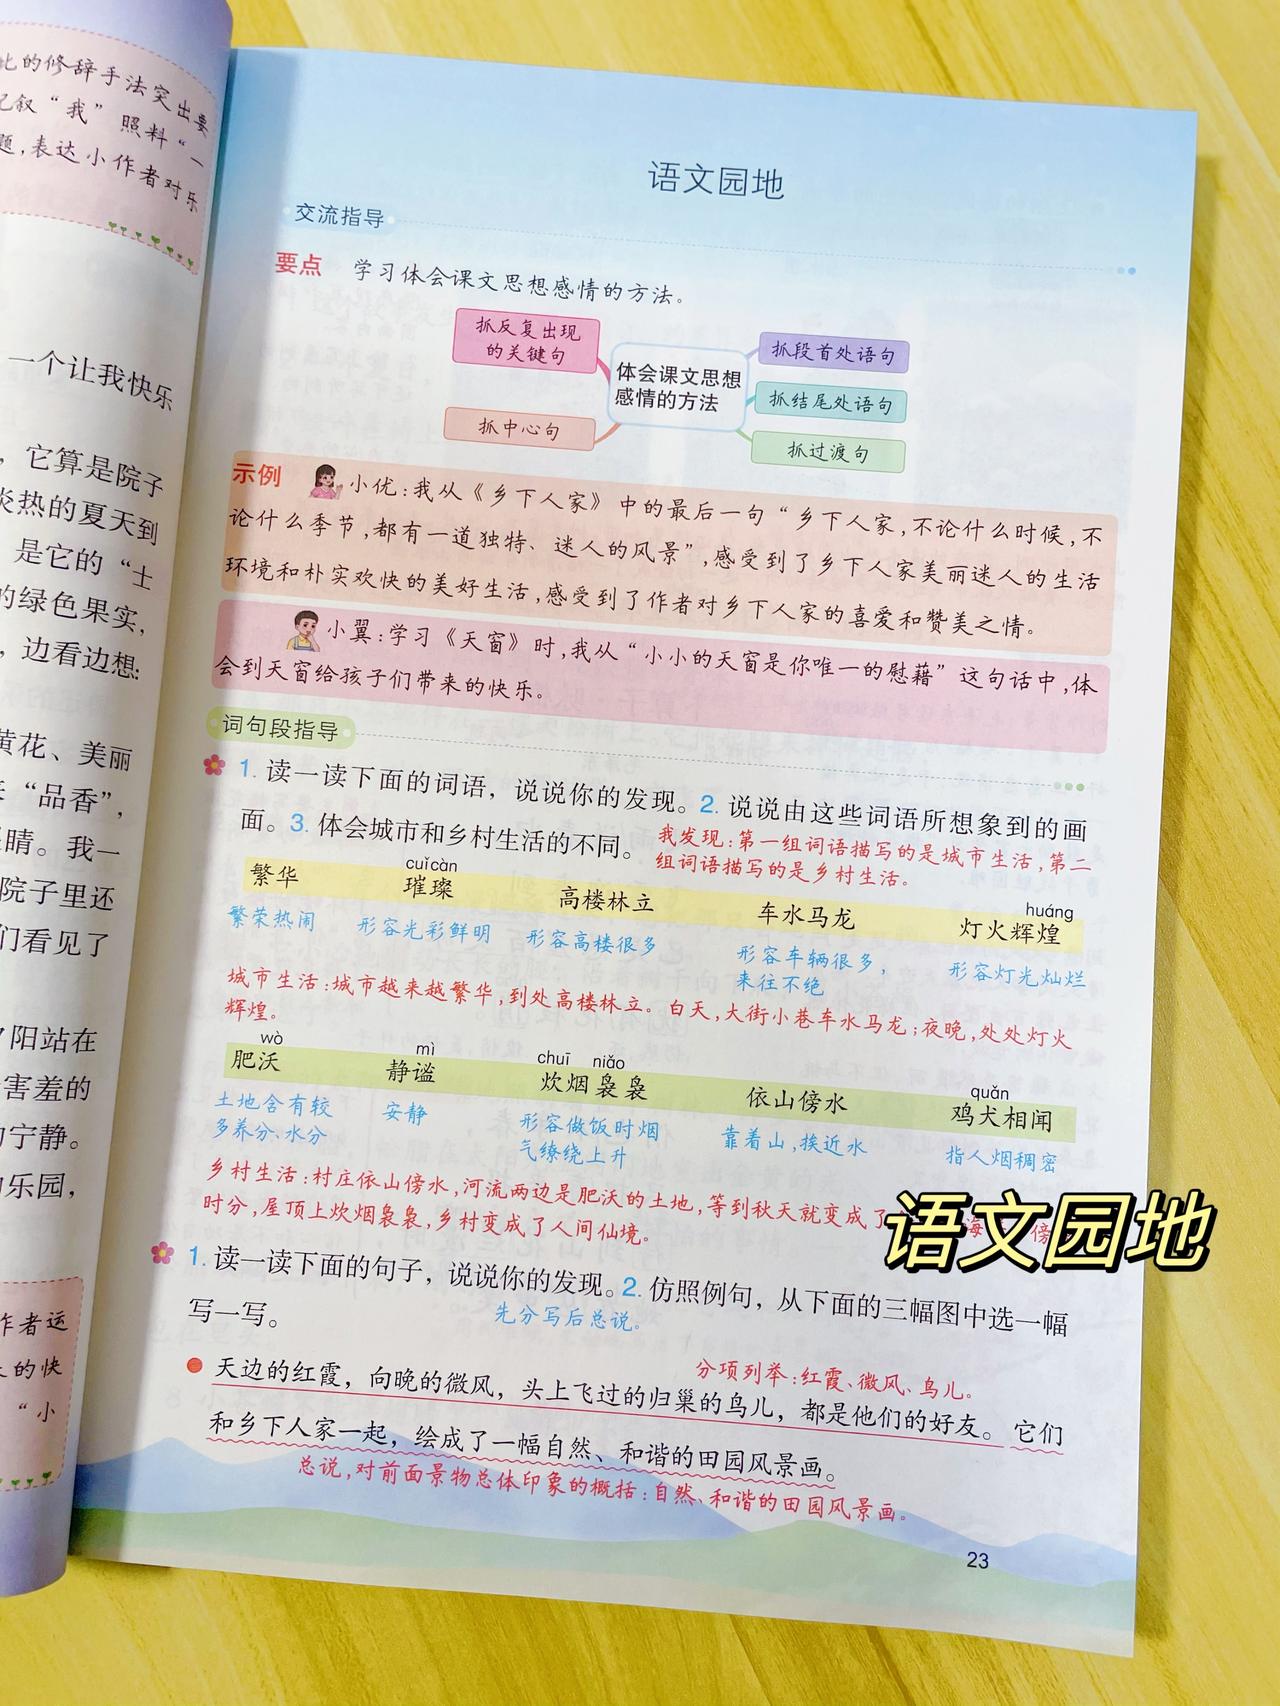 比的修辞手法突出要
记叙“我”照料“一
题，表达小作者对乐
一个让我快乐
，它算是院子
炎热的夏天到
是它的“士
的绿色果实，
，边看边想：
黄花、美丽
“品香”，
睛。我一
院子里还
们看见了
夕阳站在
害羞的
宁静。
乐园，
作者运
的快
“小
语文园地
交流指导
要点 学习体会课文思想感情的方法。
抓反复出现
的关键句
抓中心句
体会课文思想
感情的方法
抓段首处语句
抓结尾处语句
抓过渡句
示例 小优：我从《乡下人家》中的最后一句“乡下人家，不论什么时候，不
论什么季节，都有一道独特、迷人的风景”，感受到了乡下人家美丽迷人的生活
环境和朴实欢快的美好生活，感受到了作者对乡下人家的喜爱和赞美之情。
小翼：学习《天窗》时，我从“小小的天窗是你唯一的慰藉”这句话中，体
会到天窗给孩子们带来的快乐。
词句段指导
1. 读一读下面的词语，说说你的发现。2. 说说由这些词语所想象到的画
面。3. 体会城市和乡村生活的不同。
我发现：第一组词语描写的是城市生活，第二
组词语描写的是乡村生活。
cuǐcàn
huáng
繁华 璀璨 高楼林立 车水马龙 灯火辉煌
繁荣热闹 形容光彩鲜明 形容高楼很多 形容车辆很多， 形容灯光灿烂
来往不绝
城市生活：城市越来越繁华，到处高楼林立。白天，大街小巷车水马龙；夜晚，处处灯火
辉煌。
wò mì chuī niǎo quǎn
肥沃 静谧 炊烟袅袅 依山傍水 鸡犬相闻
土地含有较 安静 形容做饭时烟 靠着山，挨近水 指人烟稠密
多养分、水分 气缭绕上升
乡村生活：村庄依山傍水，河流两边是肥沃的土地，等到秋天就变成了 海 傍
时分，屋顶上炊烟袅袅，乡村变成了人间仙境。
语文园地
1. 读一读下面的句子，说说你的发现。2. 仿照例句，从下面的三幅图中选一幅
写一写。
先分写后总说。
分项列举：红霞、微风、鸟儿。
天边的红霞，向晚的微风，头上飞过的归巢的鸟儿，都是他们的好友。它们
和乡下人家一起，绘成了一幅自然、和谐的田园风景画。
总说，对前面景物总体印象的概括：自然、和谐的田园风景画。
23